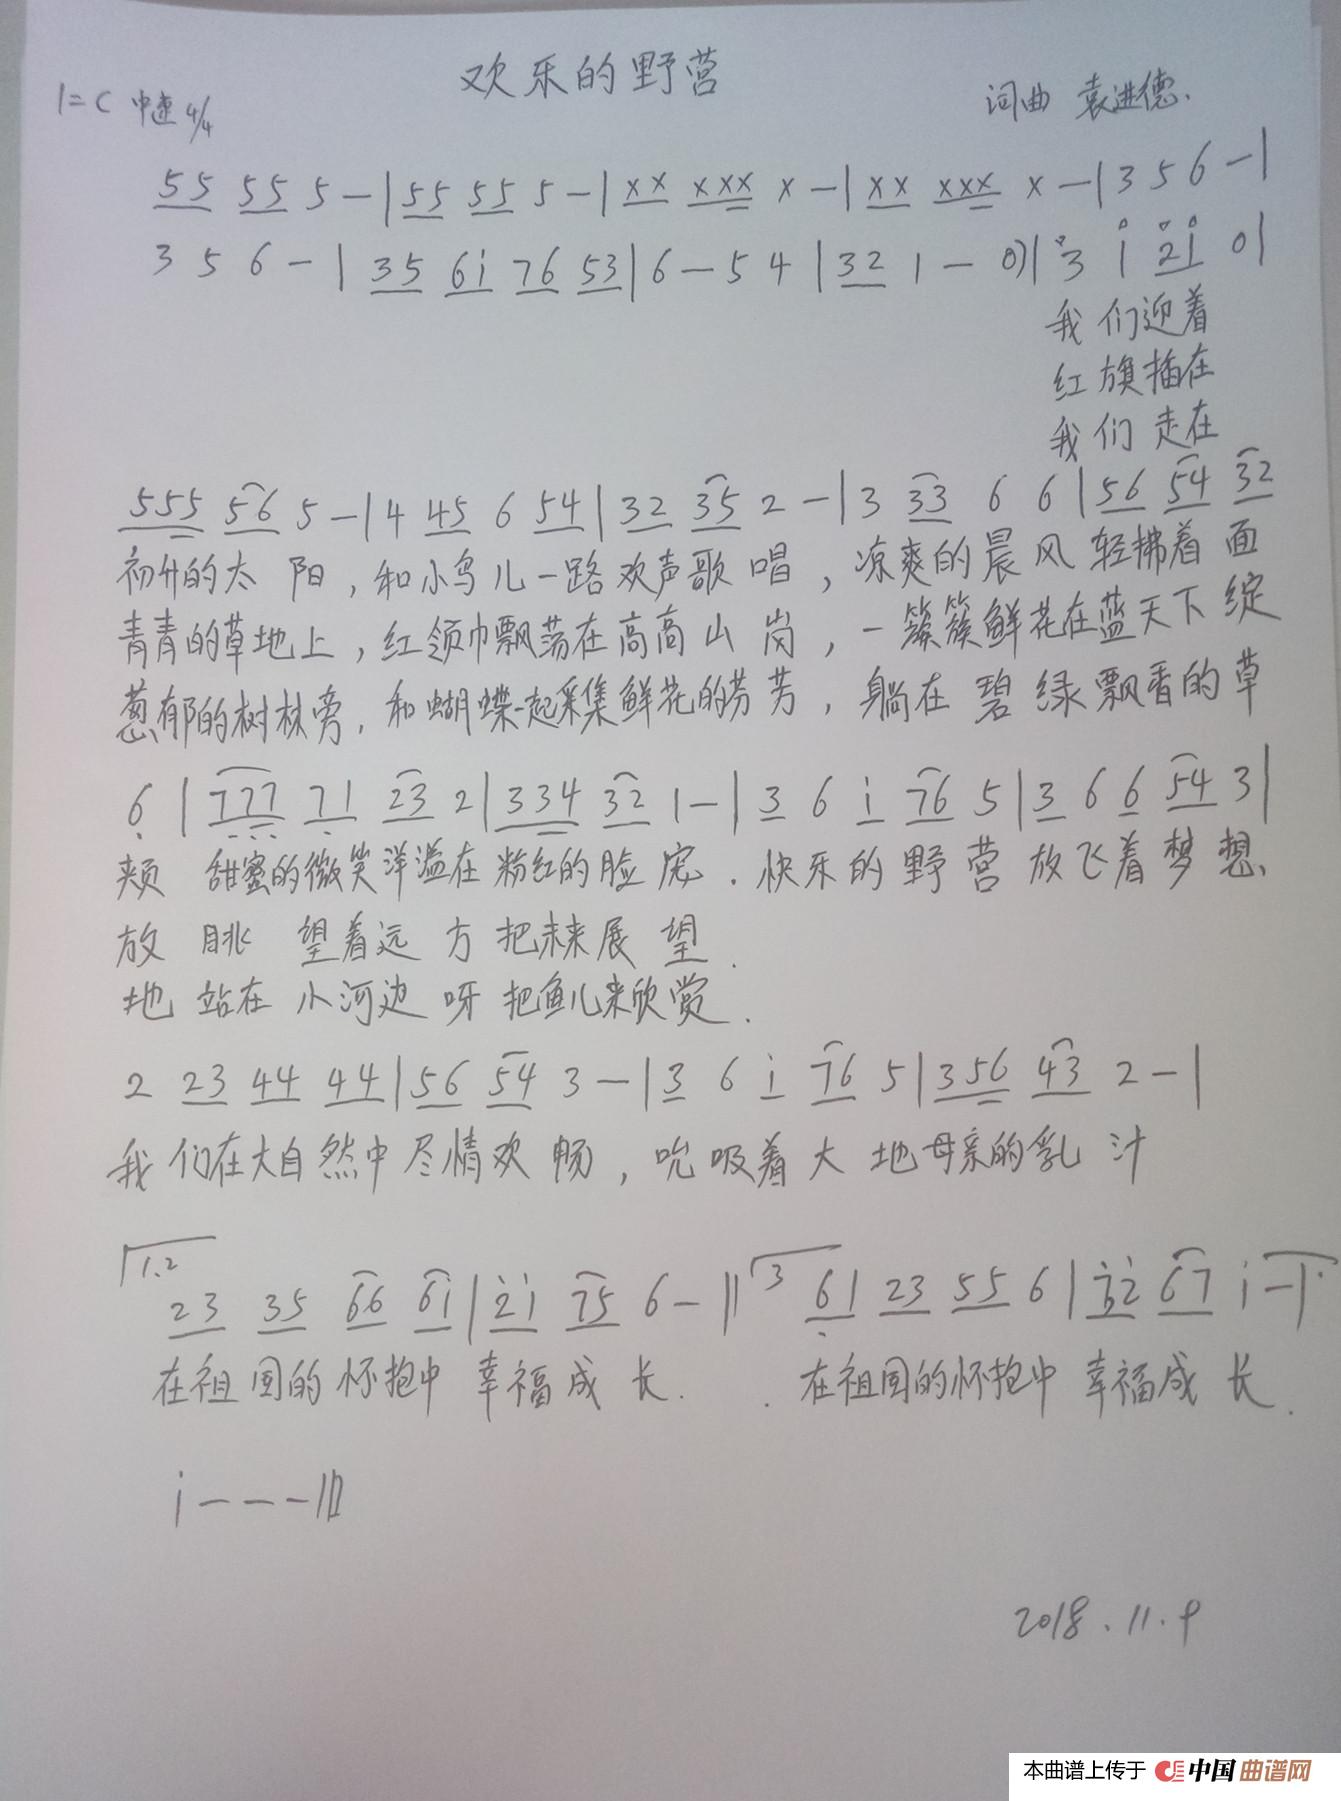 欢乐的野营
1=C 中速 4/4 词曲 袁进德.
55 55 5 - | 55 55 5 - | XX XXX X - | XX XXX X - | 3 5 6 - |
3 5 6 - | 35 6i 76 53 | 6 - 5 4 | 32 1 - 0) | 3 i 2i 0 |
我们迎着
红旗插在
我们走在
555 56 5 - | 4 45 6 54 | 32 35 2 - | 3 33 6 6 | 56 54 32
初升的太阳,和小鸟儿一路欢声歌唱,凉爽的晨风轻拂着面
青青的草地上,红领巾飘荡在高高山岗,一簇簇鲜花在蓝天下绽
葱郁的树林旁,和蝴蝶一起采集鲜花的芬芳,躺在碧绿飘香的草
6 | 777 71 23 2 | 334 32 1 - | 3 6 i 76 5 | 3 6 6 54 3 |
颊 甜蜜的微笑洋溢在粉红的脸庞.快乐的野营放飞着梦想、
放 眺望着远方把未来展望.
地 站在小河边呀把鱼儿来欣赏.
2 23 44 44 | 56 54 3 - | 3 6 i 76 5 | 356 43 2 - |
我们在大自然中尽情欢畅,吮吸着大地母亲的乳汁
1.2 23 35 66 6i | 2i 75 6 - || 3 61 23 55 6 | 12 67 i - |
在祖国的怀抱中幸福成长. . 在祖国的怀抱中幸福成长.
i - - - ||
2018.11.9
本曲谱上传于 中国曲谱网